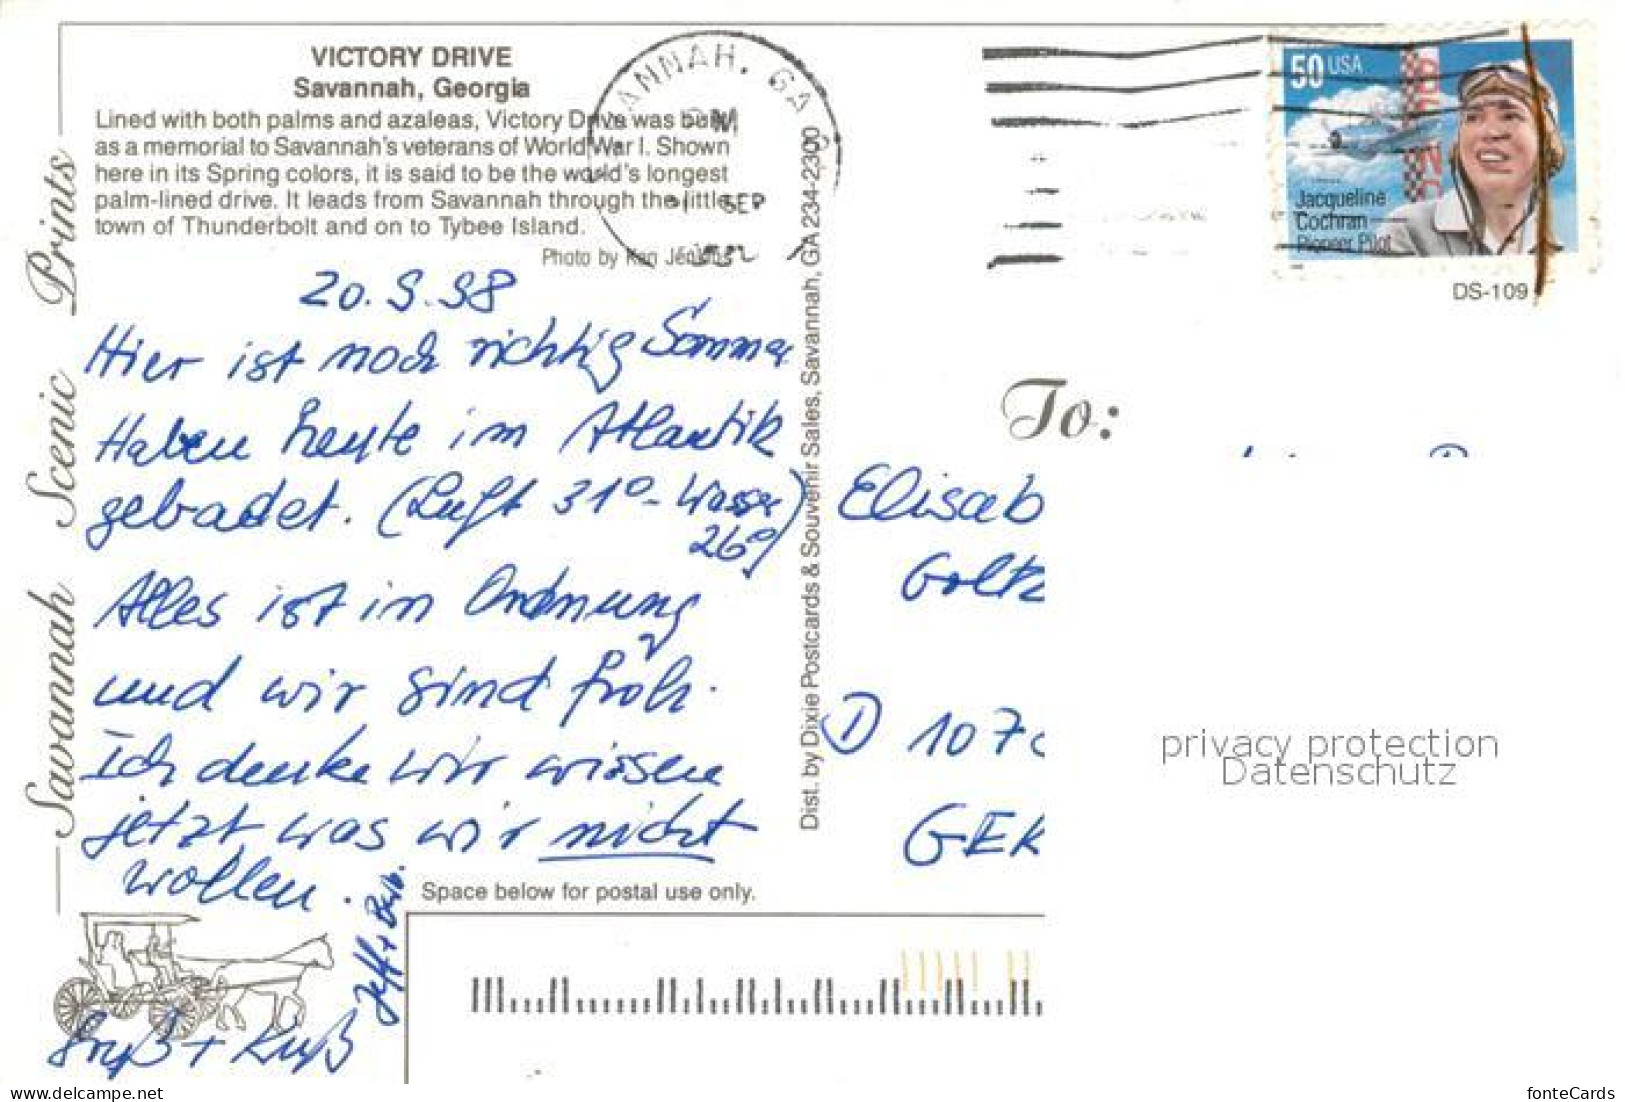 VICTORY DRIVE
Savannah, Georgia
Lined with both palms and azaleas, Victory Drive was built
as a memorial to Savannah's veterans of World War I. Shown
here in its Spring colors, it is said to be the world's longest
palm-lined drive. It leads from Savannah through the little
town of Thunderbolt and on to Tybee Island.
Photo by Ken Jenkins
Savannah Scenic Prints
ANNAH, GA
PM
SEP
50 USA
Jacqueline
Cochran
Pioneer Pilot
DS-109
20.9.98
Hier ist noch richtig Sommer
Haben heute im Atlantik
gebadet. (Luft 31° - Wasser
26°)
Alles ist in Ordnung
und wir sind froh.
Ich denke wir wissen
jetzt was wir nicht
wollen.
Gruß + Kuß
Jeff +
Dist. by Dixie Postcards & Souvenir Sales, Savannah, GA 234-2300
To:
Elisab
Goltz
D 107
GER
Space below for postal use only.
privacy protection
Datenschutz
www.delcampe.net
fonteCards